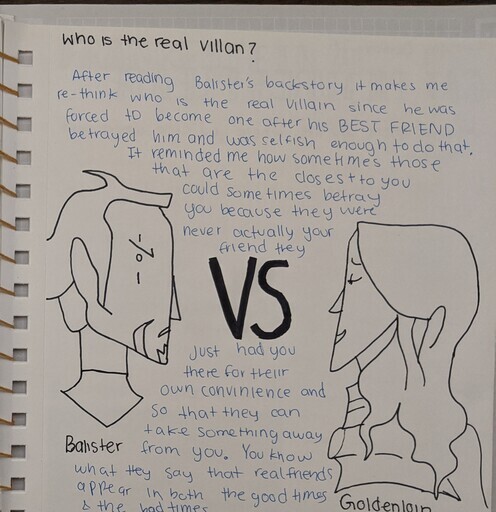 who is the real villan?
After reading Balister's backstory it makes me
re-think who is the real villain since he was
forced to become one after his BEST FRIEND
betrayed him and was selfish enough to do that.
It reminded me how sometimes those
that are the closest to you
could sometimes betray
you because they were
never actually your
friend they
VS
Just had you
there for their
own convinience and
so that they can
take something away
from you. You know
what they say that real friends
appear in both the good times
& the bad times
Balister
Goldenloin